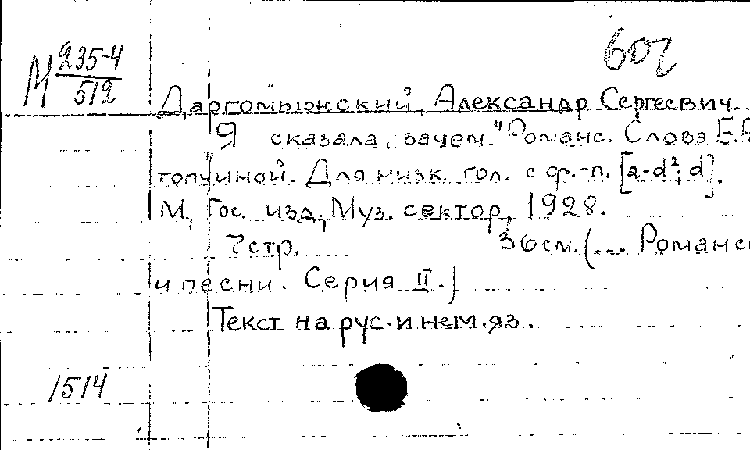 М 235-4
512
602
Даргомыжский, Александр Сергеевич.
Я сказала, зачем." Романс. Слова Е.
топчиной. Для низк. гол. с ф.-п. [a-d²; d].
М., Гос. изд., Муз. сектор, 1928.
7 стр. 36 см. (... Романсы
и песни. Серия II.)
Текст на рус. и нем. яз.
1514